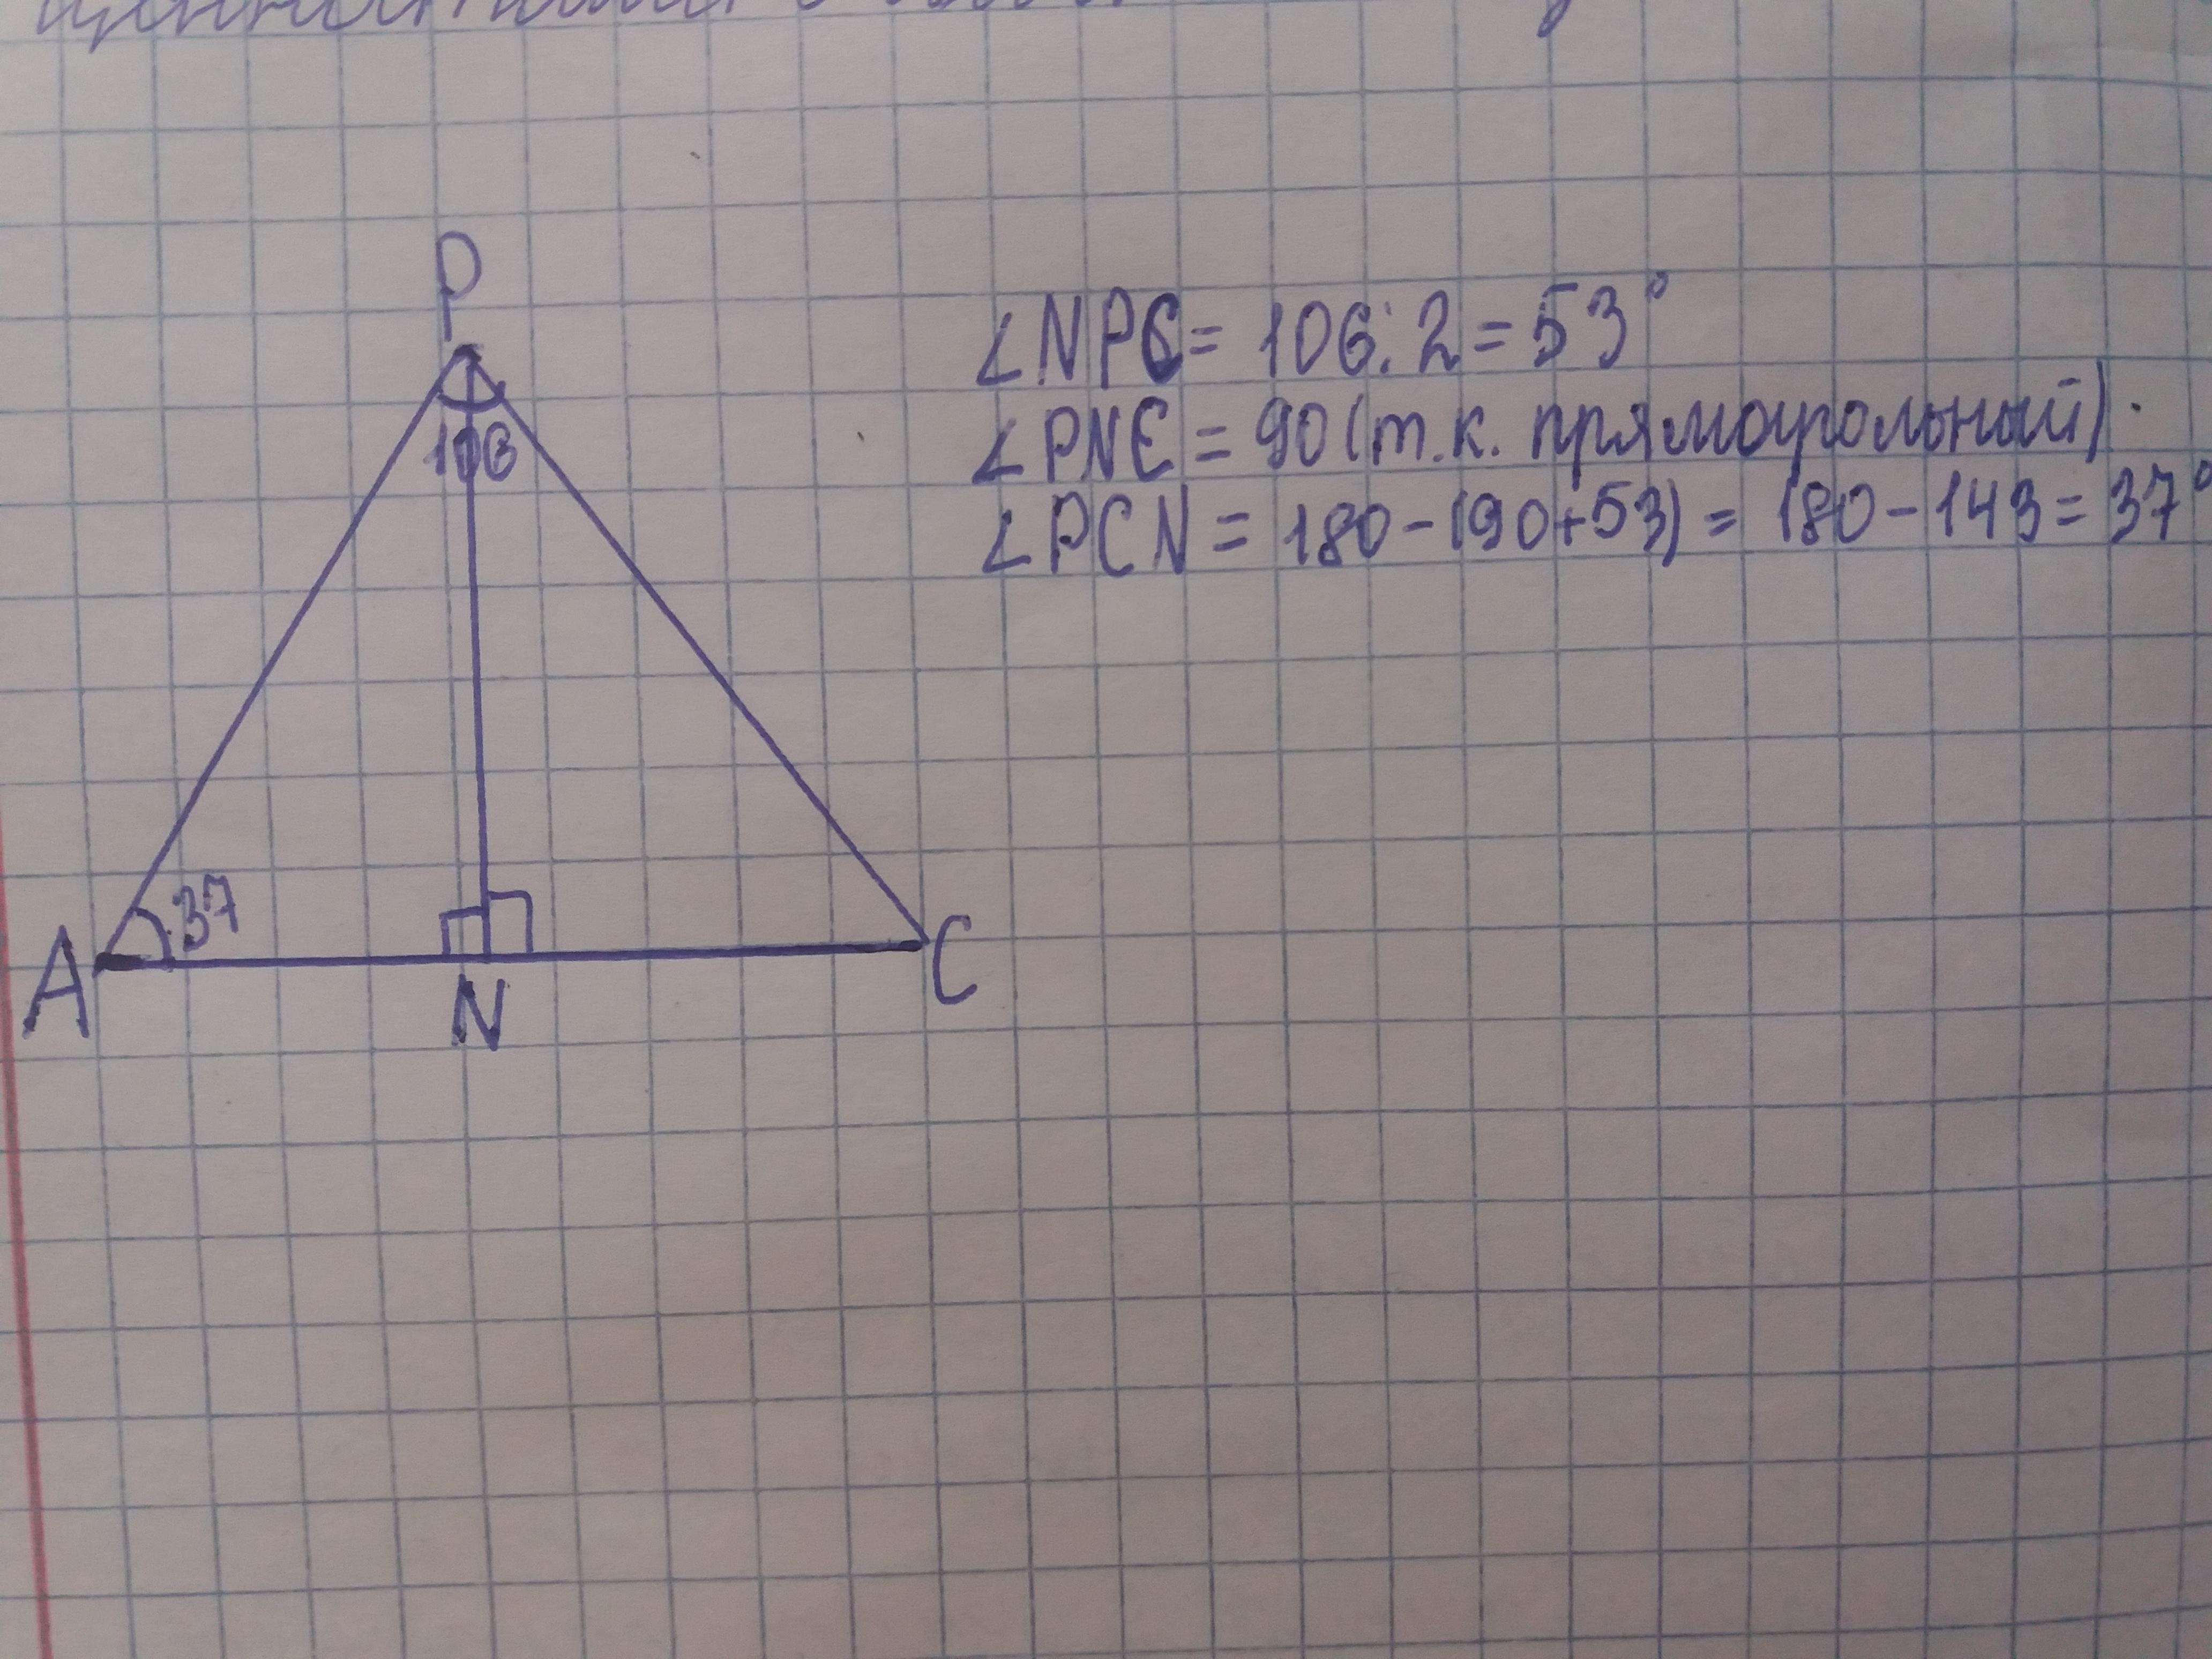 P
∠NPC = 106:2 = 53°
∠PNC = 90 (т.к. прямоугольный).
106
∠PCN = 180-(90+53) = 180-143 = 37°
37
A
N
C